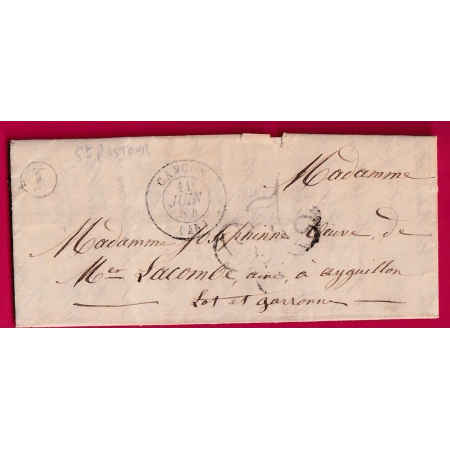 St PASTOUR
CANCON
JUIN
(45)
Madamme
Madamme Josephinne Veuve, de
Mer Lacombe, ainé, à ayguillon
Lot et garronne